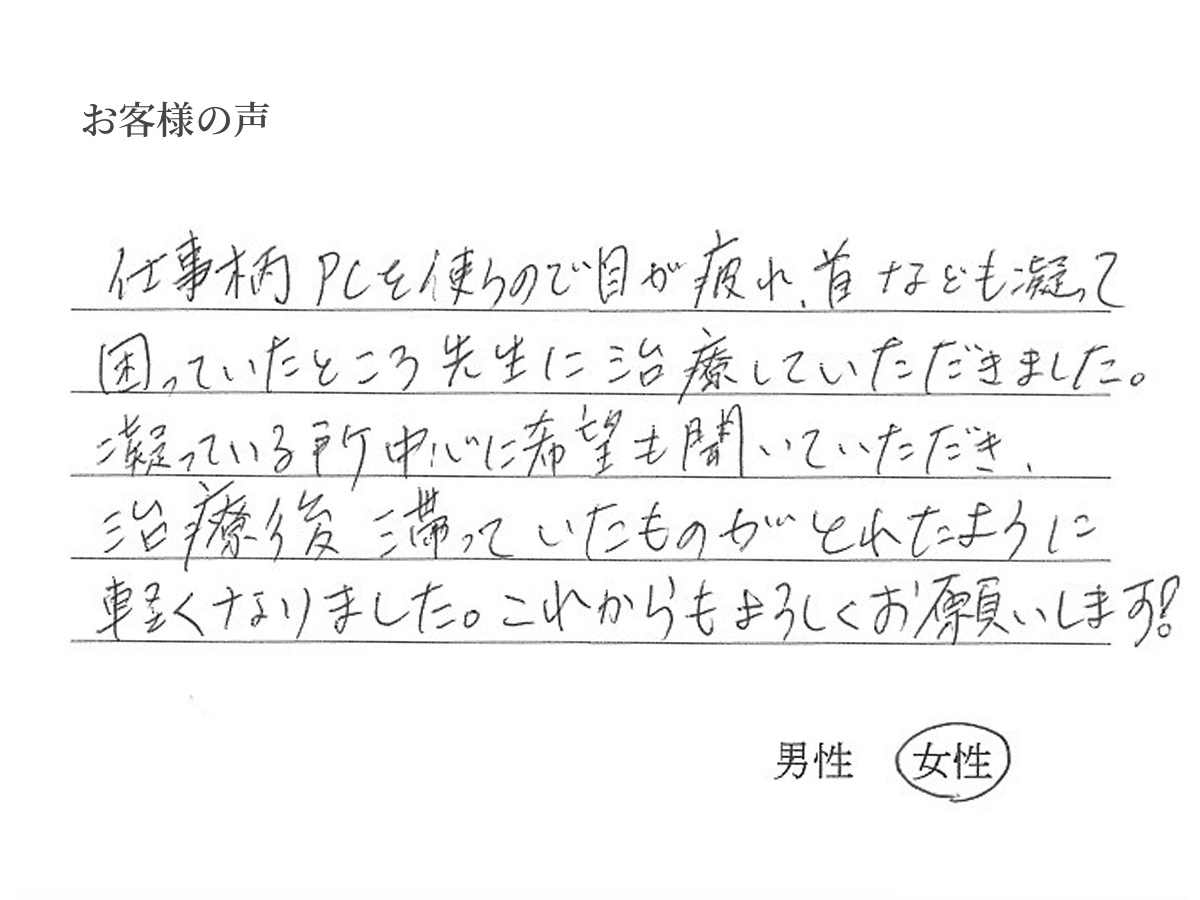 お客様の声
仕事柄PCを使うので目が疲れ、首なども凝って
困っていたところ先生に治療していただきました。
凝っている所中心に希望も聞いていただき、
治療後滞っていたものがとれたように
軽くなりました。これからもよろしくお願いします!
男性 女性